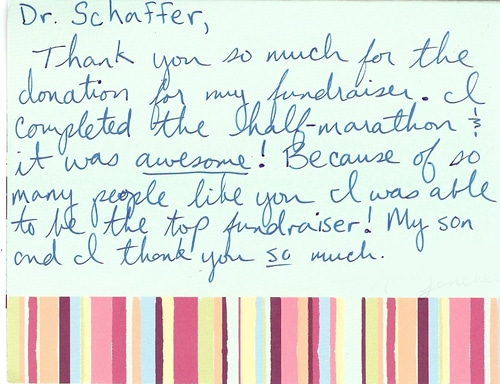 Dr. Schaffer,
Thank you so much for the
donation for my fundraiser. I
completed the half-marathon &
it was awesome! Because of so
many people like you I was able
to be the top fundraiser! My son
and I thank you so much.